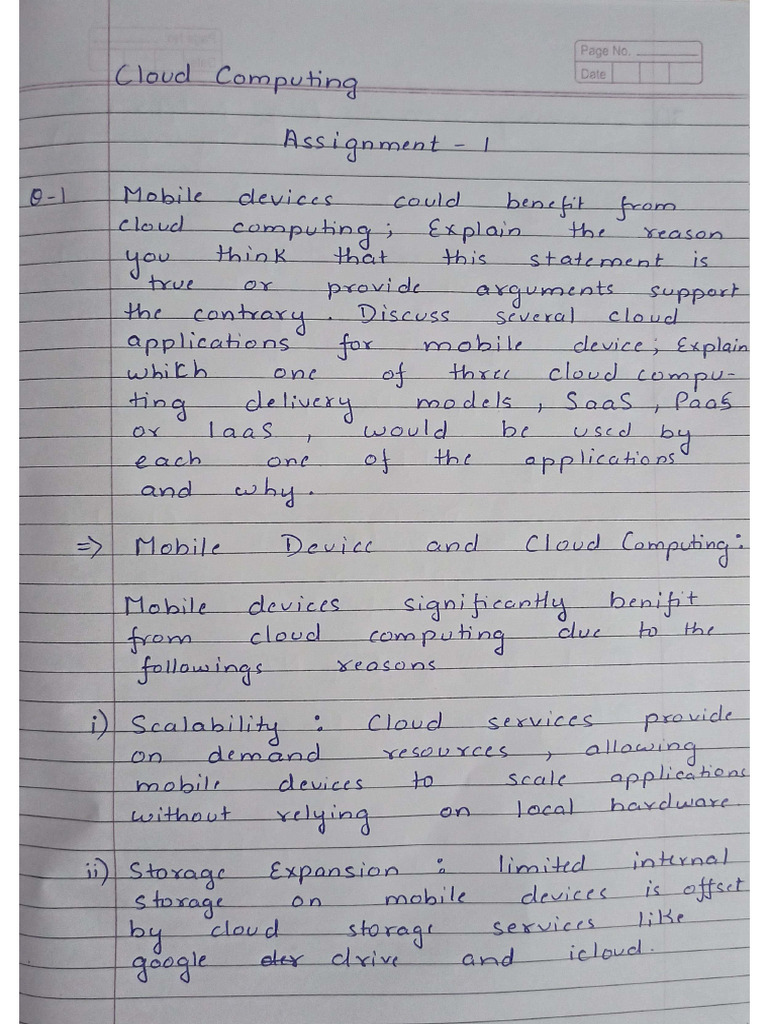 Page No.
Date
Cloud Computing
Assignment - 1
Q-1 Mobile devices could benefit from
cloud computing; Explain the reason
you think that this statement is
true or provide arguments support
the contrary. Discuss several cloud
applications for mobile device; Explain
which one of three cloud compu-
ting delivery models, SaaS, PaaS
or IaaS, would be used by
each one of the applications
and why.
=> Mobile Device and Cloud Computing:
Mobile devices significantly benifit
from cloud computing due to the
followings reasons
i) Scalability : Cloud services provide
on demand resources, allowing
mobile devices to scale applications
without relying on local hardware
ii) Storage Expansion : limited internal
storage on mobile devices is offset
by cloud storage services like
google drive and icloud.